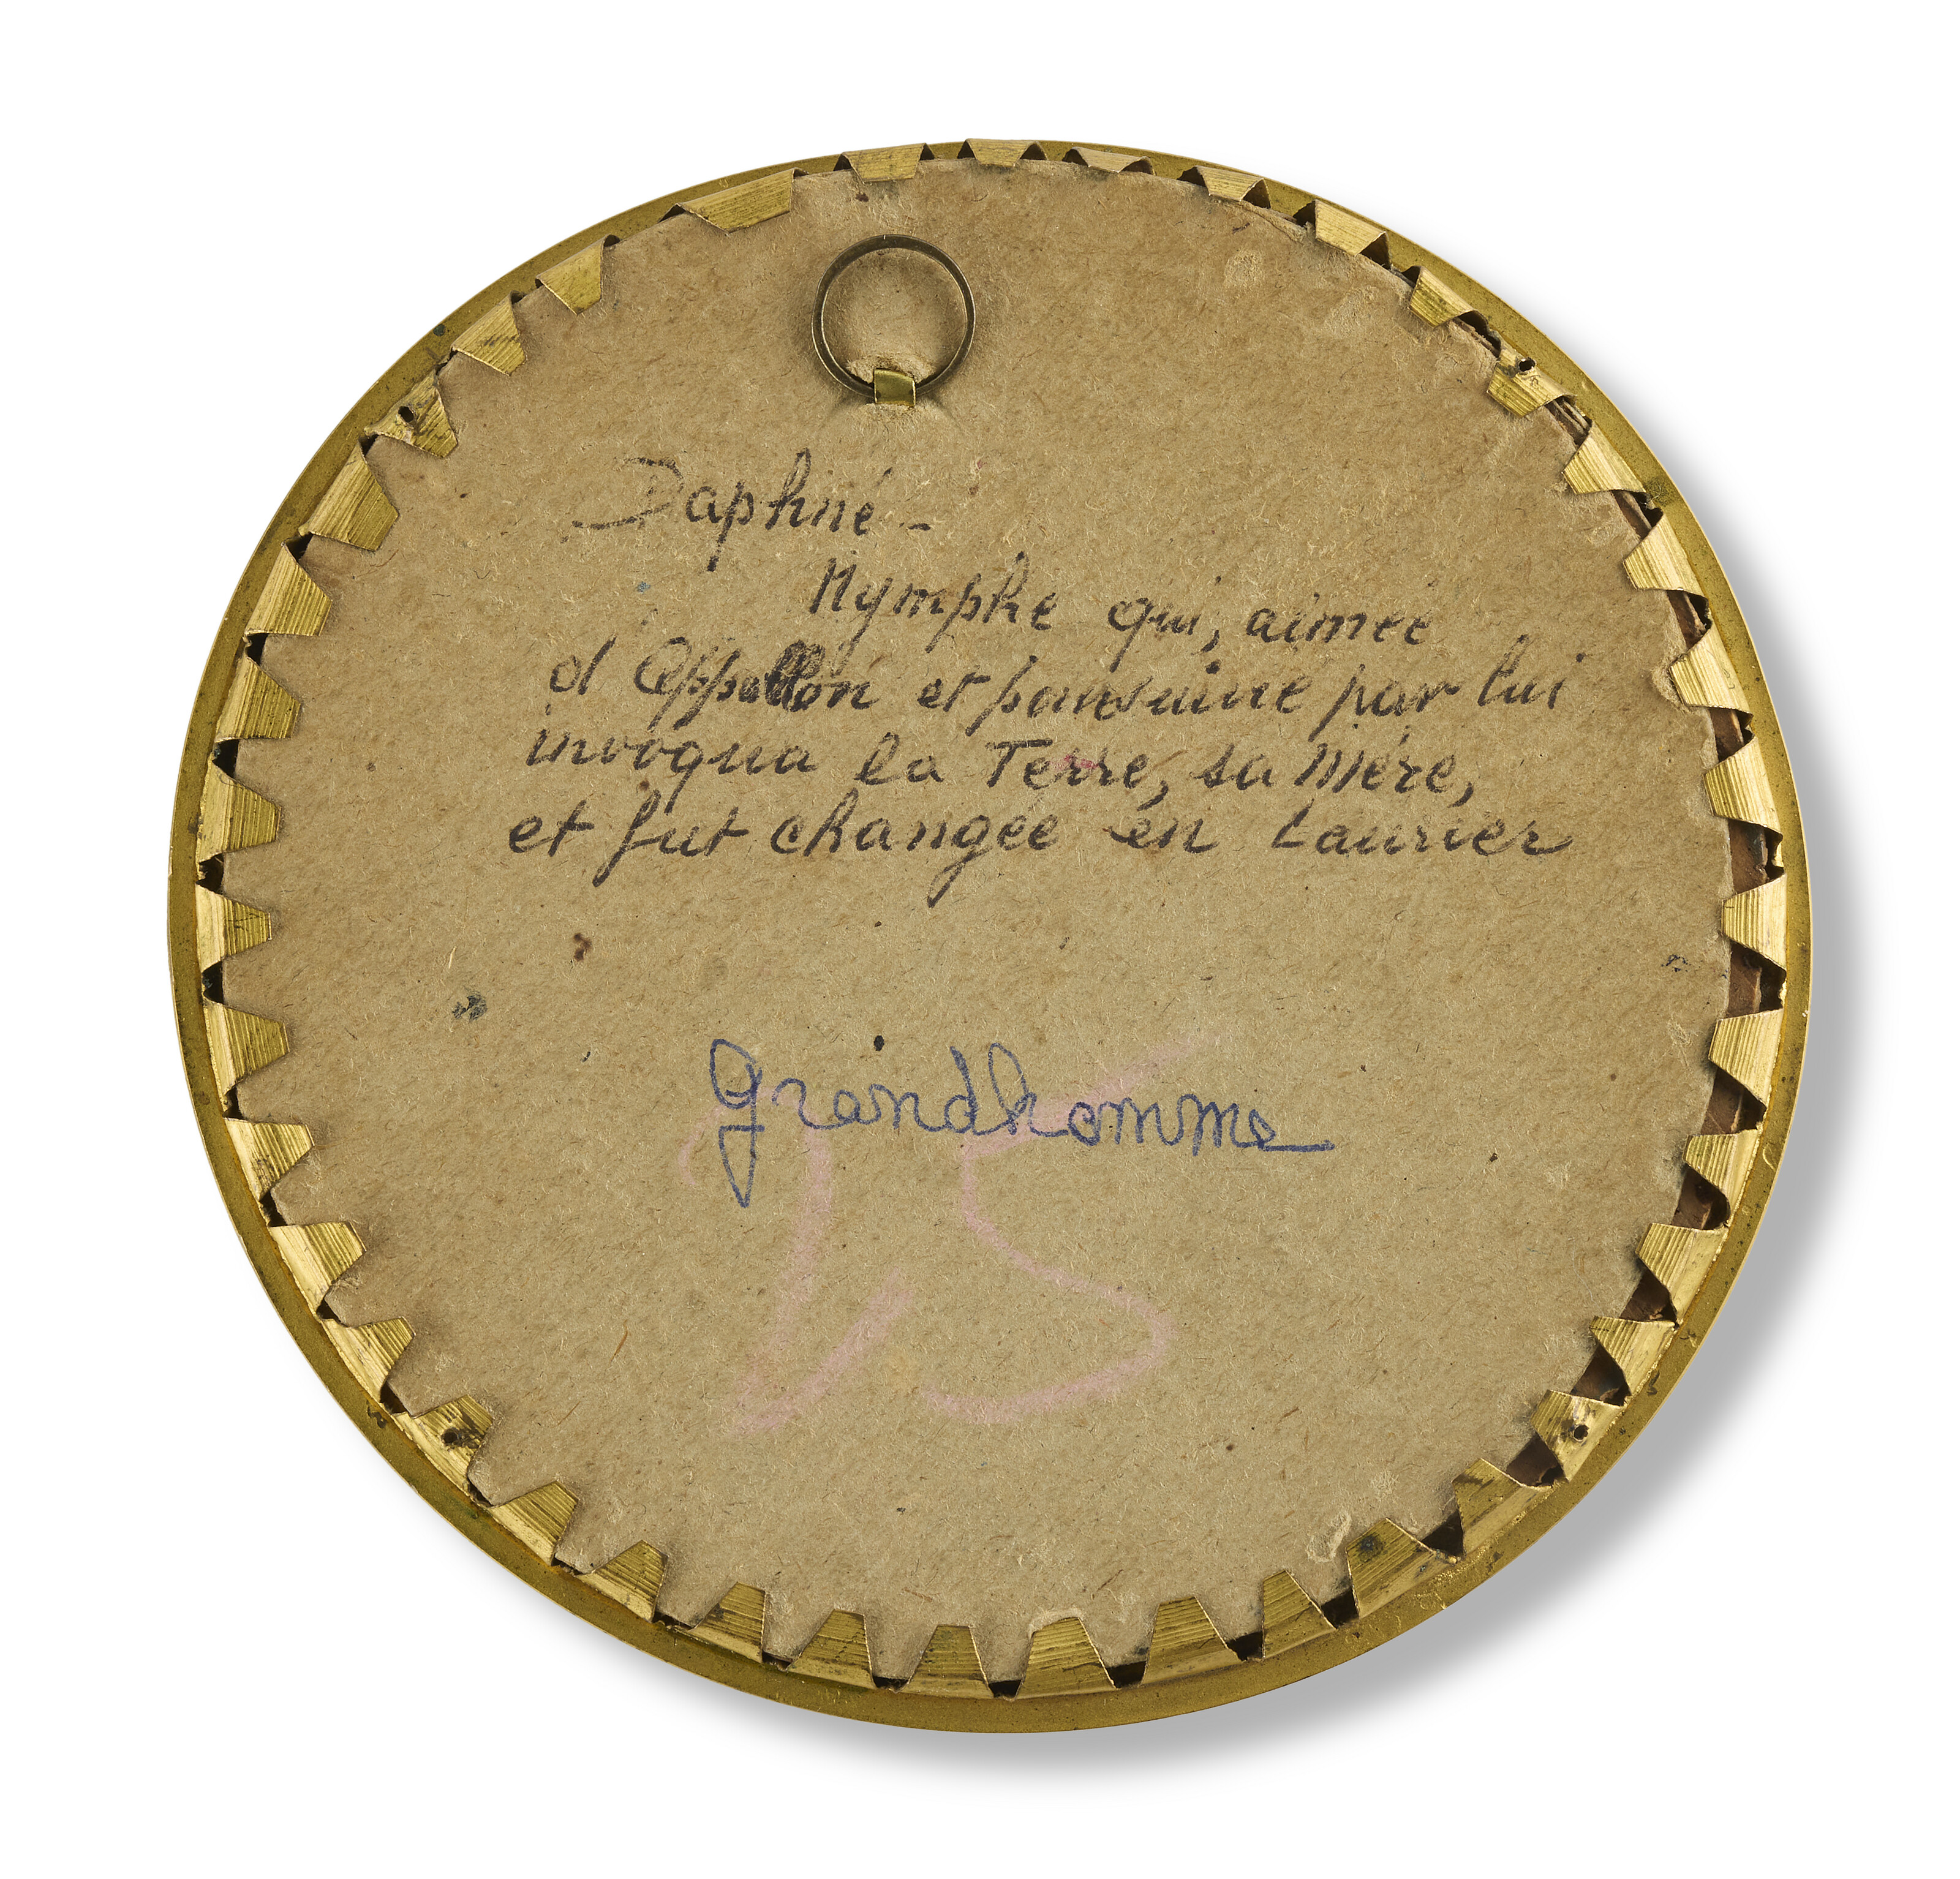 Daphné -
Nymphe qui, aimée
d Appollon et poursuivie par lui
invoqua la Terre, sa Mère,
et fut changée en Laurier
Grandhomme
25